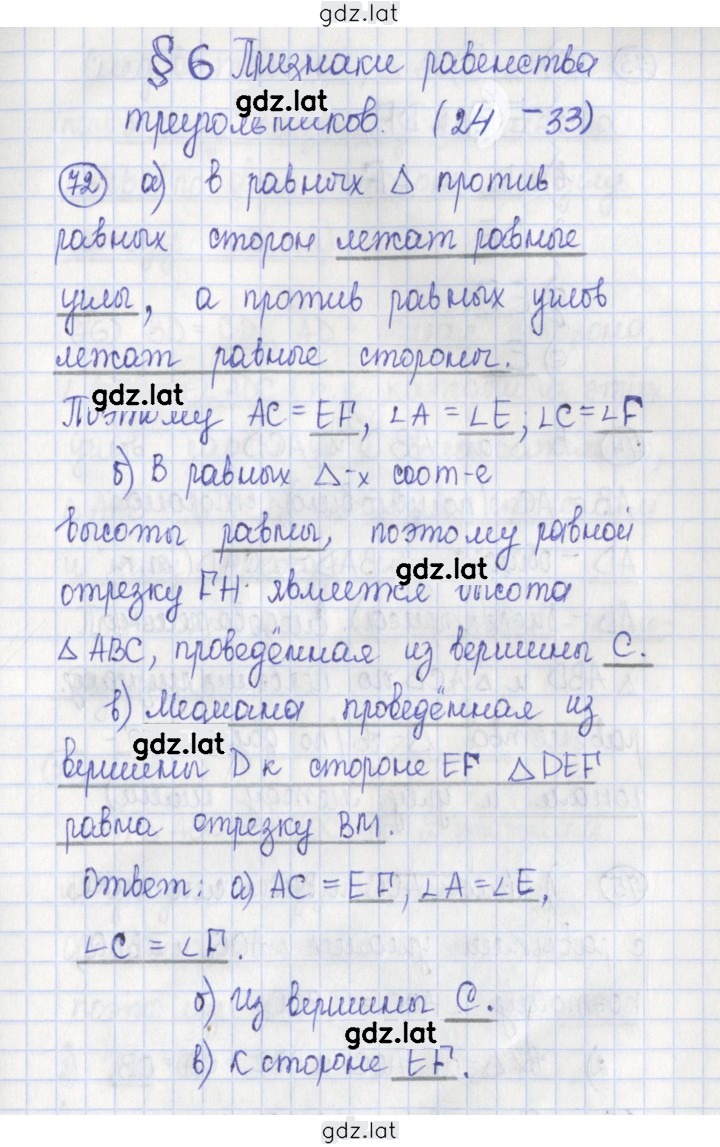 gdz.lat
§ 6 Признаки равенства
gdz.lat
треугольников. (24 - 33)
72 а) в равных Δ против
равных сторон лежат равные
углы, а против равных углов
лежат равные стороны.
gdz.lat
Поэтому AC = EF, ∠A = ∠E; ∠C = ∠F
б) В равных Δ-х соот-е
высоты равны, поэтому равной
gdz.lat
отрезку FH является высота
Δ ABC, проведённая из вершины C.
в) Медиана проведённая из
gdz.lat
вершины D к стороне EF Δ DEF
равна отрезку BM.
Ответ: а) AC = EF, ∠A = ∠E,
∠C = ∠F.
б) Из вершины C.
gdz.lat
в) К стороне EF.
gdz.lat